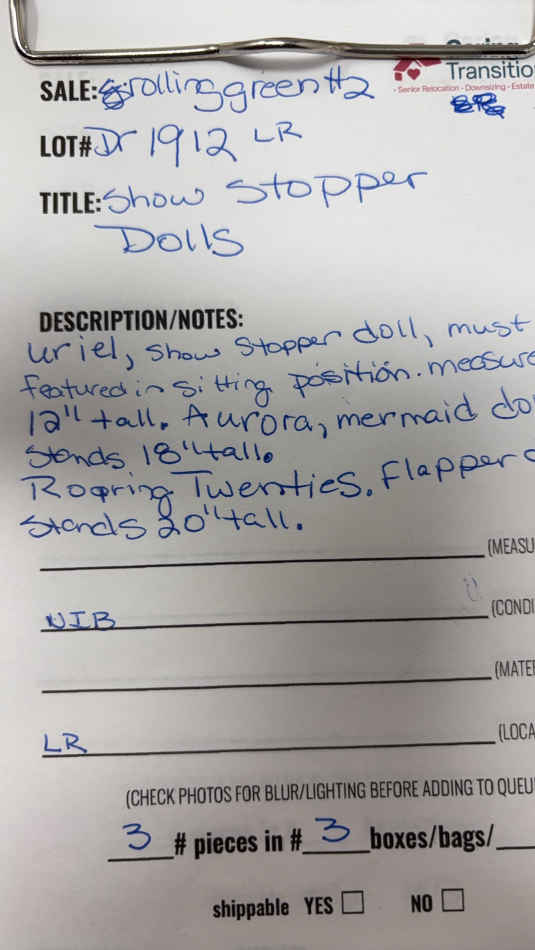 Caring
Transitio
- Senior Relocation - Downsizing - Estate
SALE: rollinggreen#2
LOT# Dr 1912 LR
TITLE: Show Stopper
Dolls
DESCRIPTION/NOTES:
Uriel, Show Stopper doll, must
featured in sitting position. measure
12" tall. Aurora, mermaid do
stands 18" tall.
Roaring Twenties. Flapper d
stands 20" tall.
(MEASU
NIB (CONDI
(MATE
LR (LOCA
(CHECK PHOTOS FOR BLUR/LIGHTING BEFORE ADDING TO QUEU
3 # pieces in # 3 boxes/bags/
shippable YES NO